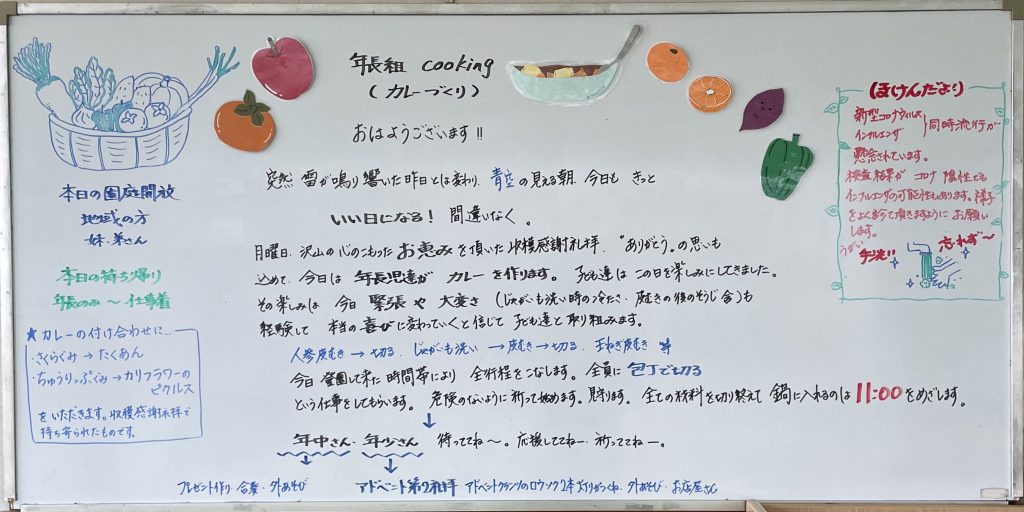 年長組 cooking
(カレーづくり)
おはようございます!!
突然 雷が鳴り響いた昨日とは変わり、青空の見える朝。今日も きっと
いい日になる! 間違いなく。
月曜日、沢山の心のこもったお恵みを頂いた収穫感謝礼拝。“ありがとう”の思いも
込めて、今日は 年長児達が カレーを作ります。子ども達は この日を楽しみにしてきました。
その楽しみは 今日 緊張や 大変さ (じゃがいも洗い時の冷たさ、皮むきの後のそうじ 含)も
経験して 本当の喜びに変わっていくと信じて 子ども達と取り組みます。
人参皮むき→切る、じゃがいも洗い→皮むき→切る、玉ねぎ皮むき 等
今日 登園して来た時間帯により 全行程をこなします。全員に 包丁で切る
という仕事をしてもらいます。危険のないように祈って始めます。見守ります。全ての材料を切り終えて 鍋に入れるのは 11:00をめざします。
年中さん、年少さん 待っててね〜。応援しててねー、祈っててねー。
プレゼント作り、合奏・外あそび
アドベント第2礼拝 アドベントクランツのロウソク2本 灯りがつくね、外あそび・お店屋さん
本日の園庭開放
地域の方
妹・弟さん
本日の持ち帰り
年長のみ〜仕事着
★カレーの付け合わせに…
・さくらくみ→たくあん
・ちゅうりっぷくみ→カリフラワーの
ピクルス
をいただきます。収穫感謝礼拝で
持ち寄られたものです。
ほけんだより
新型コロナウィルス
インフルエンザ
同時流行が
懸念されています。
検査結果が コロナ 陰性でも
インフルエンザの可能性もあります。様子
をよくみて頂きますように お願い
します。
うがい
手洗い
忘れず〜